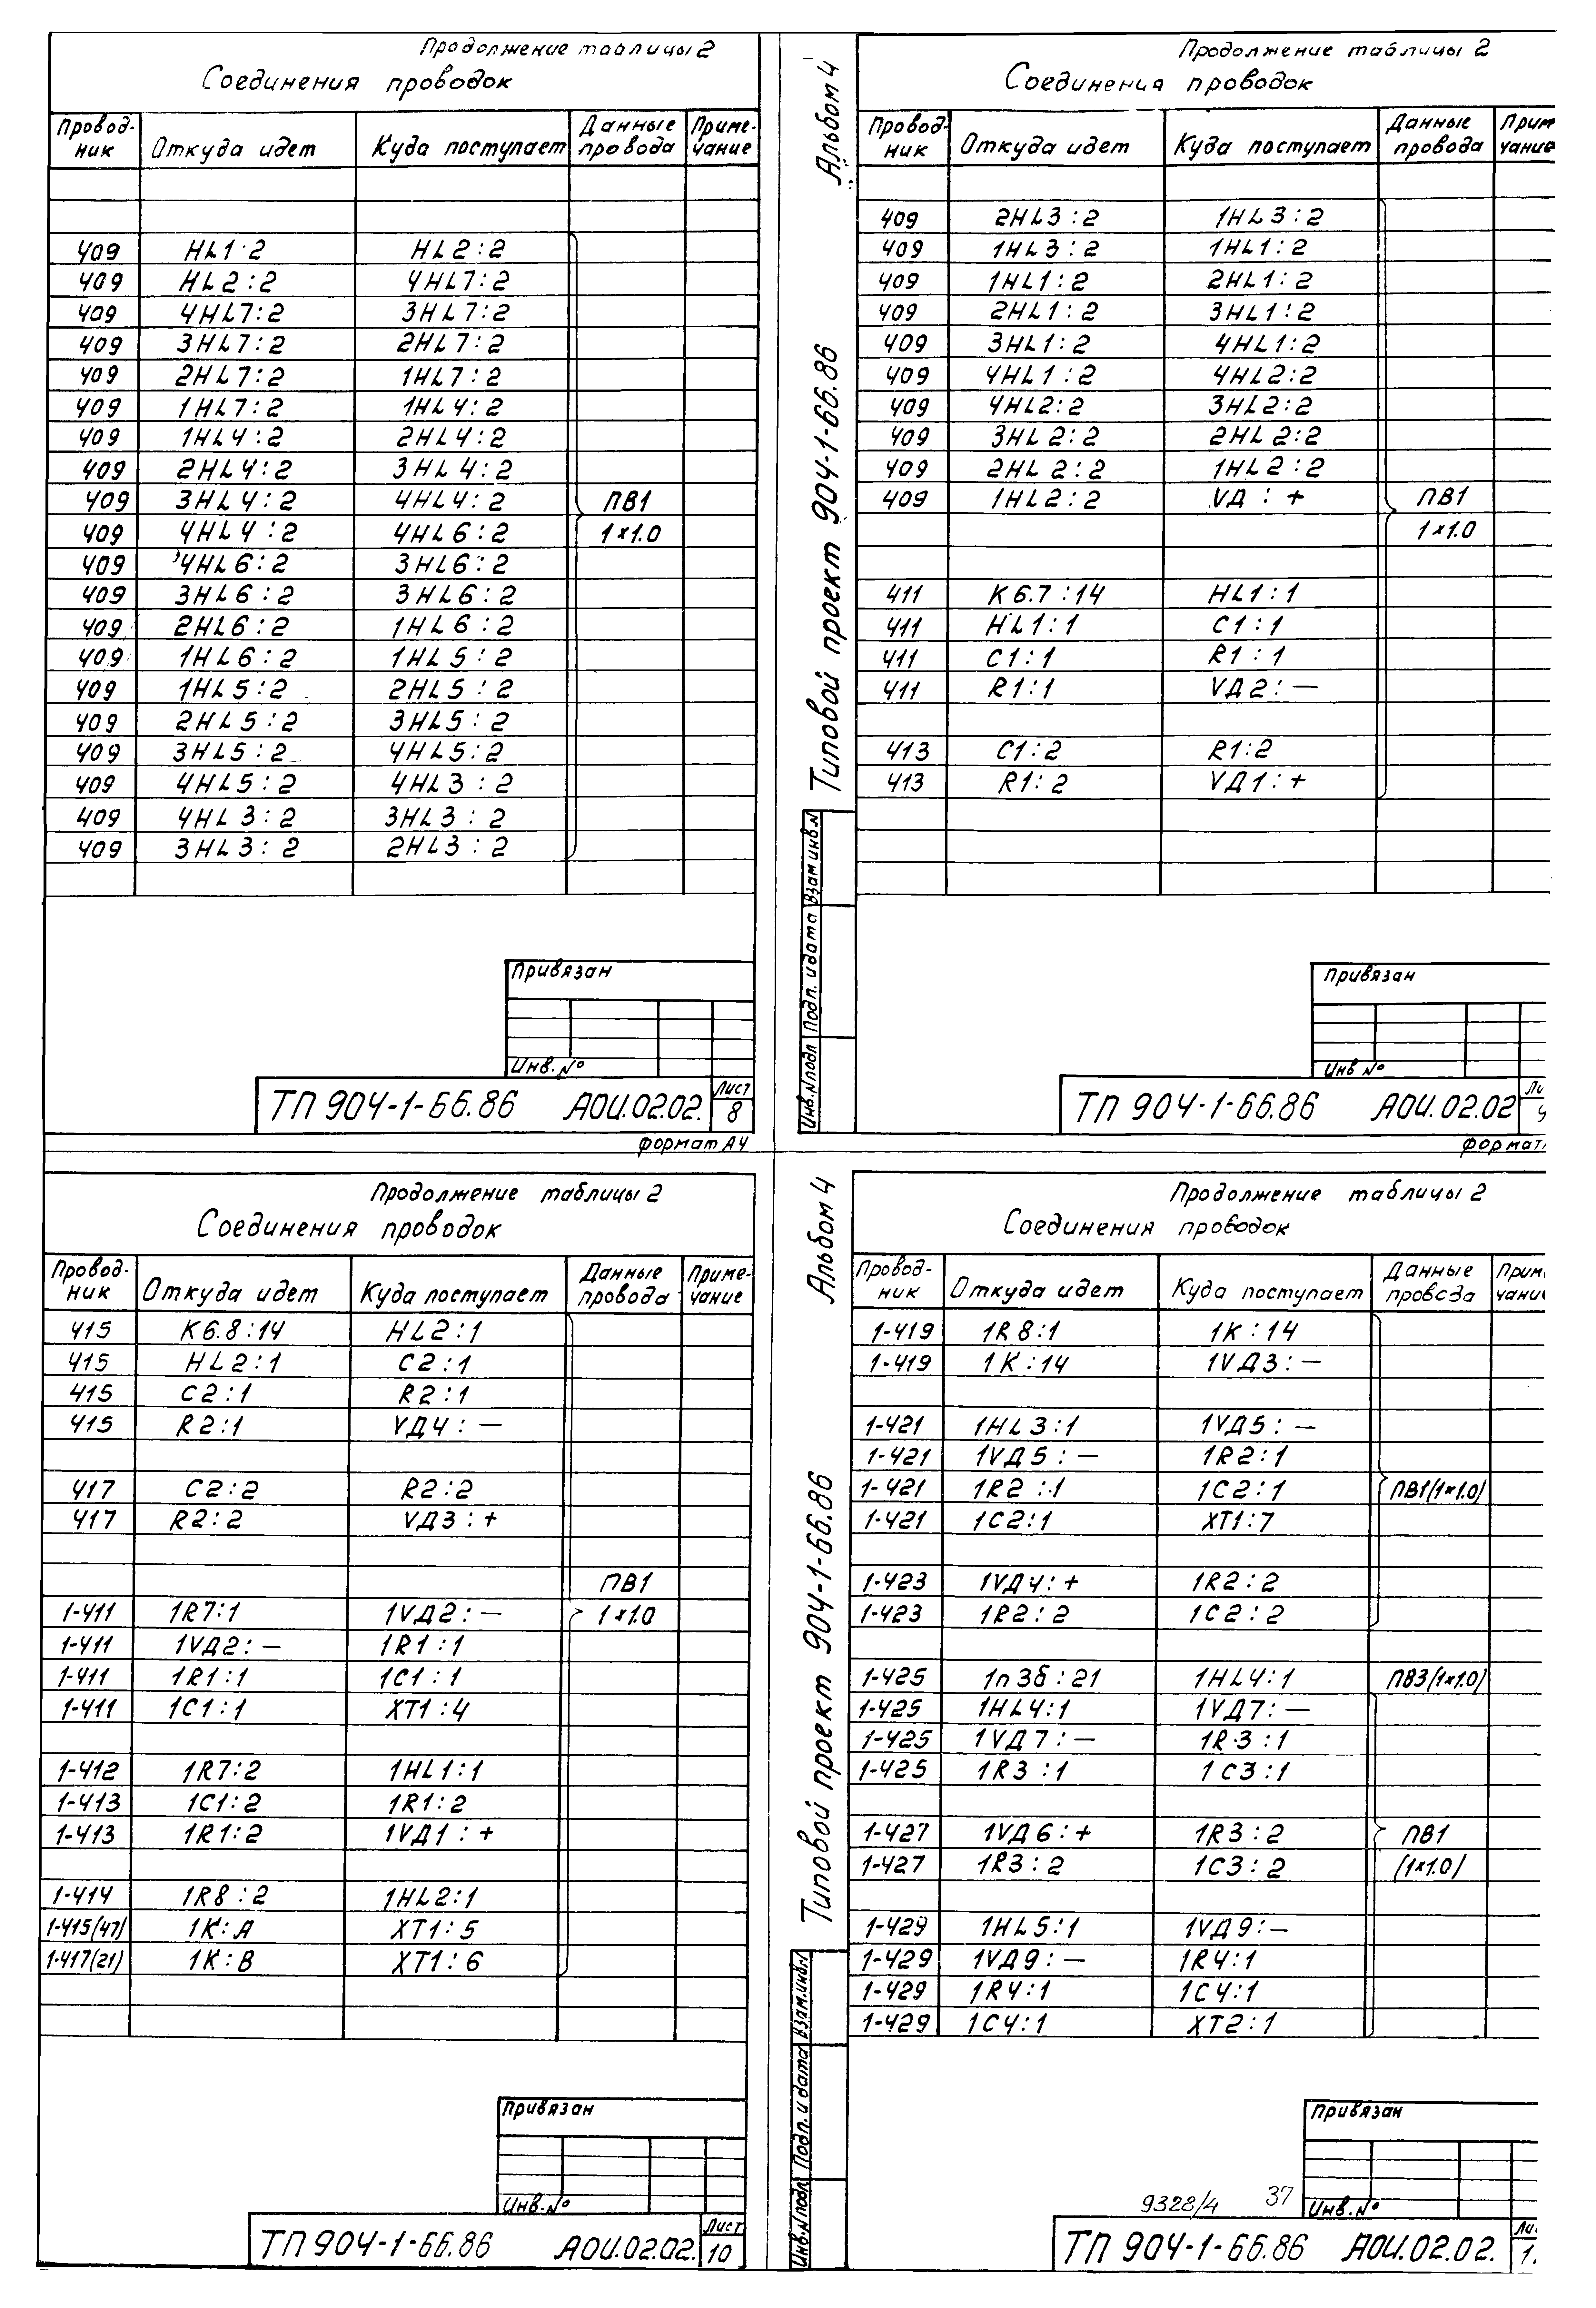 Продолжение таблицы 2
Соединения проводок
Провод-ник Откуда идет Куда поступает Данные провода Приме-чание
409 HL1:2 HL2:2
409 HL2:2 4HL7:2
409 4HL7:2 3HL7:2
409 3HL7:2 2HL7:2
409 2HL7:2 1HL7:2
409 1HL7:2 1HL4:2
409 1HL4:2 2HL4:2
409 2HL4:2 3HL4:2
409 3HL4:2 4HL4:2 ПВ1
409 4HL4:2 4HL6:2 1×1.0
409 4HL6:2 3HL6:2
409 3HL6:2 3HL6:2
409 2HL6:2 1HL6:2
409 1HL6:2 1HL5:2
409 1HL5:2 2HL5:2
409 2HL5:2 3HL5:2
409 3HL5:2 4HL5:2
409 4HL5:2 4HL3:2
409 4HL3:2 3HL3:2
409 3HL3:2 2HL3:2
Привязан
Инв.№
ТП 904-1-66.86 АОИ.02.02. Лист 8
формат А4
Альбом 4
Типовой проект 904-1-66.86
Инв.№подл Подп. и дата Взам инв.№
Продолжение таблицы 2
Соединения проводок
Провод-ник Откуда идет Куда поступает Данные провода Прим чание
409 2HL3:2 1HL3:2
409 1HL3:2 1HL1:2
409 1HL1:2 2HL1:2
409 2HL1:2 3HL1:2
409 3HL1:2 4HL1:2
409 4HL1:2 4HL2:2
409 4HL2:2 3HL2:2
409 3HL2:2 2HL2:2
409 2HL2:2 1HL2:2
409 1HL2:2 VД:+ ПВ1
1×1.0
411 К6.7:14 HL1:1
411 HL1:1 C1:1
411 C1:1 R1:1
411 R1:1 VД2:—
413 C1:2 R1:2
413 R1:2 VД1:+
Привязан
Инв №
ТП 904-1-66.86 АОИ.02.02
формат
Продолжение таблицы 2
Соединения проводок
Провод-ник Откуда идет Куда поступает Данные провода Приме-чание
415 К6.8:14 HL2:1
415 HL2:1 C2:1
415 C2:1 R2:1
415 R2:1 VД4:—
417 C2:2 R2:2
417 R2:2 VД3:+
ПВ1
1-411 1R7:1 1VД2:— 1×1.0
1-411 1VД2:— 1R1:1
1-411 1R1:1 1C1:1
1-411 1C1:1 XT1:4
1-412 1R7:2 1HL1:1
1-413 1C1:2 1R1:2
1-413 1R1:2 1VД1:+
1-414 1R8:2 1HL2:1
1-415(47) 1К:А XT1:5
1-417(21) 1К:В XT1:6
Привязан
Инв.№
ТП 904-1-66.86 АОИ.02.02. Лист 10
Альбом 4
Типовой проект 904-1-66.86
Инв.№подл. Подп. и дата Взам.инв.№
Продолжение таблицы 2
Соединения проводок
Провод-ник Откуда идет Куда поступает Данные провода Прим чание
1-419 1R8:1 1К:14
1-419 1К:14 1VД3:—
1-421 1HL3:1 1VД5:—
1-421 1VД5:— 1R2:1
1-421 1R2:1 1C2:1 ПВ1(1×1.0)
1-421 1C2:1 XT1:7
1-423 1VД4:+ 1R2:2
1-423 1R2:2 1C2:2
1-425 1п3б:21 1HL4:1 ПВ3(1×1.0)
1-425 1HL4:1 1VД7:—
1-425 1VД7:— 1R3:1
1-425 1R3:1 1C3:1
1-427 1VД6:+ 1R3:2 ПВ1
1-427 1R3:2 1C3:2 (1×1.0)
1-429 1HL5:1 1VД9:—
1-429 1VД9:— 1R4:1
1-429 1R4:1 1C4:1
1-429 1C4:1 XT2:1
Привязан
9328/4 37 Инв.№
ТП 904-1-66.86 АОИ.02.02.